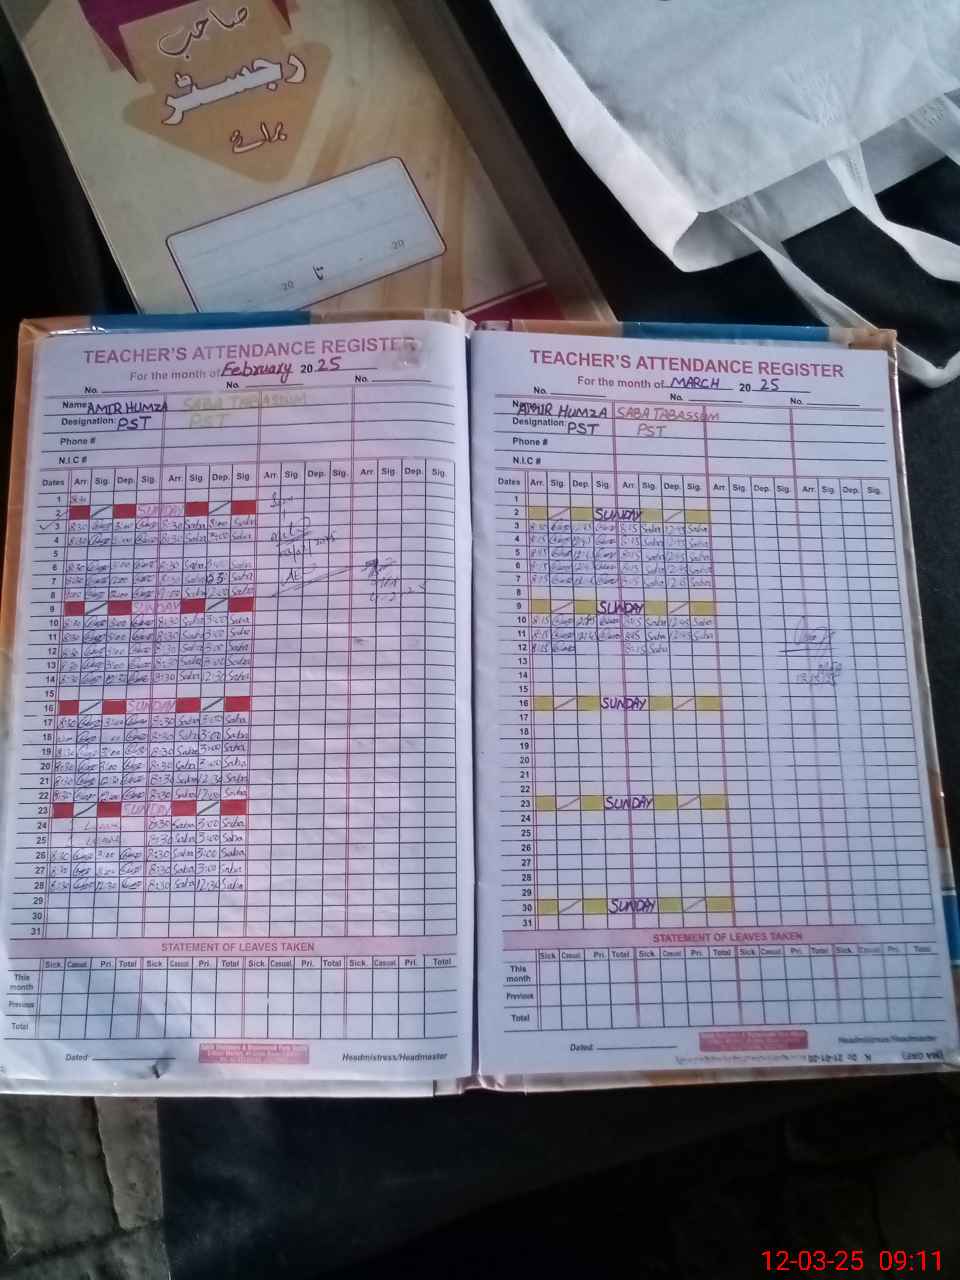 صاحب
رجسٹر
برائے
20 تا 20
TEACHER'S ATTENDANCE REGISTER
For the month of February 20 25
No. No. No.
Name AMIR HUMZA SABA TABASSUM
Designation: PST PST
Phone #
N.I.C #
Dates Arr. Sig. Dep. Sig. Arr. Sig. Dep. Sig. Arr. Sig. Dep. Sig.
1 8:30
2 SUNDAY
3 8:30 3:00 8:30 Saba 3:00 Saba
4 8:30 3:00 8:30 Saba 3:00 Saba
5
6 8:30 3:00 8:30 Saba 3:00 Saba
7 8:30 8:30 Saba Saba
8 Saba Saba
9 SUNDAY
10 8:30 3:00 8:30 Saba 3:00 Saba
11 8:30 3:00 8:30 Saba 3:00 Saba
12 8:30 3:00 8:30 Saba 3:00 Saba
13 8:30 3:00 8:30 Saba 3:00 Saba
14 8:30 12:30 8:30 Saba 12:30 Saba
15
16 SUNDAY
17 8:30 3:00 8:30 Saba 3:00 Saba
18 8:30 Saba 3:00 Saba
19 8:30 3:00 8:30 Saba 3:00 Saba
20 8:30 3:00 8:30 Saba 3:00 Saba
21 8:30 12:30 8:30 Saba 12:30 Saba
22 8:30 8:30 Saba Saba
23 SUNDAY
24 8:30 Saba 3:00 Saba
25 8:30 Saba 3:00 Saba
26 8:30 3:00 8:30 Saba 3:00 Saba
27 8:30 3:00 8:30 Saba 3:00 Saba
28 8:30 12:30 8:30 Saba 12:30 Saba
29
30
31
STATEMENT OF LEAVES TAKEN
Sick. Casual. Pri. Total Sick Casual. Pri. Total Sick. Casual. Pri. Total
This month
Previous
Total
Dated Headmistress/Headmaster
TEACHER'S ATTENDANCE REGISTER
For the month of MARCH 20 25
No. No. No.
Name AMIR HUMZA SABA TABASSUM
Designation: PST PST
Phone #
N.I.C #
Dates Arr. Sig. Dep. Sig. Arr. Sig. Dep. Sig. Arr. Sig. Dep. Sig.
1
2 SUNDAY
3 8:30 12:45 8:15 Saba 12:45 Saba
4 8:15 12:45 8:15 Saba 12:45 Saba
5 8:15 12:45 8:15 Saba 12:45 Saba
6 8:15 12:45 8:15 Saba 12:45 Saba
7 8:15 8:15 Saba 12:45 Saba
8
9 SUNDAY
10 8:15 12:45 8:15 Saba 12:45 Saba
11 8:15 12:45 8:15 Saba 12:45 Saba
12 8:15 8:15 Saba
13
14
15
16 SUNDAY
17
18
19
20
21
22
23 SUNDAY
24
25
26
27
28
29
30 SUNDAY
31
STATEMENT OF LEAVES TAKEN
Sick Casual. Pri. Total Sick. Casual. Pri. Total Sick. Casual. Pri. Total
This month
Previous
Total
Dated: Headmistress/Headmaster
12-03-25 09:11